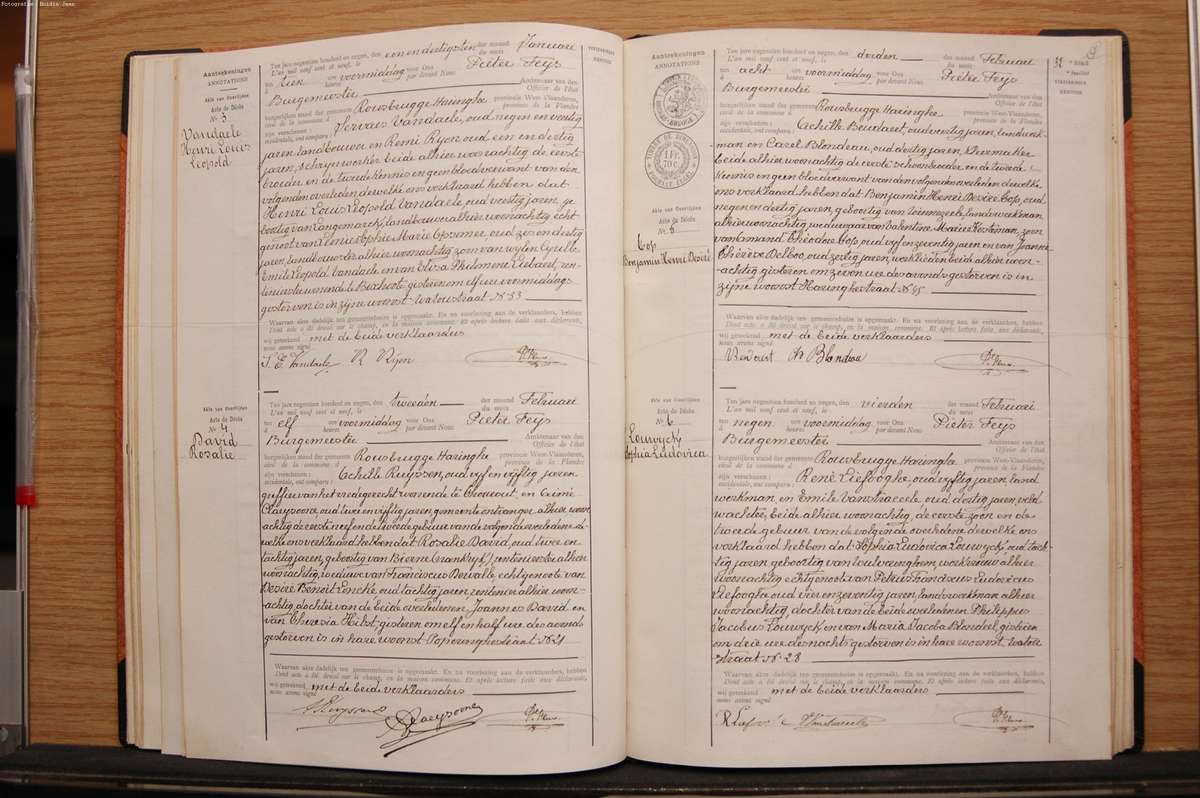 Fotografie: Buidin Jean
Aanteekeningen
ANNOTATIONS
Akte van Overlijden
Acte de Décès
Nr 3
Vandaele
Henri Louis
Leopold
Ten jare negentien honderd en negen, den een en dertigsten der maand Januari
L'an mil neuf cent et neuf, le du mois
ten tien ure voormiddag voor Ons Pieter Feys
à heures par devant Nous
Burgemeester Ambtenaar van den
Officier de l'état
burgerlijken stand der gemeente Rousbrugge Haringhe provincie West-Vlaanderen,
civil de la commune d province de la Flandre
zijn verschenen: Gervais Vandaele, oud negen en veertig
occidentale, ont comparu
jaren, landbouwer en Remi Ryon oud een en dertig
jaren, schrijnwerker beide alhier woonachtig de eerste
broeder en de tweede kennis en geen bloedverwant van den
volgenden overleden dewelke ons verklaard hebben dat
Henri Louis Leopold Vandaele, oud veertig jaren, ge
boortig van Langemarck, landbouwer alhier woonachtig echt
genoot van Leonie Sophie Marie Opsomer oud zes en dertig
jaren, landbouwster alhier woonachtig zoon van wylen Cyrille
Emile Leopold Vandaele en van Eliza Philomene Liebaert, ren-
tenierster wonende te Bixschote gisteren om elf ure voormiddags
gestorven is in zijne woonst Watoustraat No 53
Waarvan akte dadelijk ten gemeentehuize is opgemaakt. En na voorlezing aan de verklaarders, hebben
Dont acte a été dressé sur le champ, en la maison commune. Et après lecture faite aux déclarants,
wij geteekend met de beide verklaarders
nous avons signé
R Ryon
Akte van Overlijden
Acte de Décès
Nr 4
David
Rosalie
Ten jare negentien honderd en negen, den tweeden der maand Februari
L'an mil neuf cent et neuf, le du mois
ten elf ure voormiddag voor Ons Pieter Feys
à heures par devant Nous
Burgemeester Ambtenaar van den
Officier de l'état
burgerlijken stand der gemeente Rousbrugge Haringhe provincie West-Vlaanderen,
civil de la commune d province de la Flandre
zijn verschenen: Achille Ruyssen, oud vyf en vyftig jaren
occidentale, ont comparu
griffier van het vredegerecht wonende te Crombeke, en Remi
Claeysoone, oud twee en vyftig jaren gemeente ontvanger alhier woon
achtig de eerste neef en de tweede gebuur van de volgende overledene de
welke ons verklaard hebben dat Rosalie David, oud twee en
tachtig jaren, geboortig van Bierne (Frankryk), rentenierster alhier
woonachtig, weduwe van Franciscus Dewalle echtgenoote van
Desiré Benoit Loncke oud tachtig jaren rentenier alhier woon-
achtig, dochter van de beide overledenen, Joannes David en
van Theresia Hibst, gisteren om elf en half ure des avonds
gestorven is in hare woonst Poperinghestraat No 21
Waarvan akte dadelijk ten gemeentehuize is opgemaakt. En na voorlezing aan de verklaarders, hebben
Dont acte a été dressé sur le champ, en la maison commune. Et après lecture faite aux déclarants,
wij geteekend met de beide verklaarders
nous avons signé
Claeysoone
Aanteekeningen
ANNOTATIONS
TIMBRE DE DIMENSION
1 FR.
70 C.
Akte van Overlijden
Acte de Décès
Nr 5
Cop
Benjamin Henri Desiré
Ten jare negentien honderd en negen, den derden der maand Februari
L'an mil neuf cent et neuf, le du mois
ten acht ure voormiddag voor Ons Pieter Feys
à heures par devant Nous
Burgemeester Ambtenaar van den
Officier de l'état
burgerlijken stand der gemeente Rousbrugge Haringhe provincie West-Vlaanderen,
civil de la commune d province de la Flandre
zijn verschenen: Achille Beudaert, oud veertig jaren, landwerk-
occidentale, ont comparu
man en Carel Blondeau, oud dertig jaren,
beide alhier woonachtig de eerste schoonbroeder en de tweede
kennis en geen bloedverwant van den volgenden overleden dewelke
ons verklaard hebben dat Benjamin Henri Desiré Cop, oud
negen en dertig jaren, geboortig van Leineezeele, landwerkman
alhier woonachtig weduwaar van Valentine Marie Kesteman, zoon
van Amand Théodore Cop, oud vyf en zeventig jaren en van Joanna
Thérèse Delboo, oud zestig jaren, werklieden beide alhier woon-
achtig gisteren om zeven ure des avonds gestorven is in
zijne woonst Haringhestraat No 45
Waarvan akte dadelijk ten gemeentehuize is opgemaakt. En na voorlezing aan de verklaarders, hebben
Dont acte a été dressé sur le champ, en la maison commune. Et après lecture faite aux déclarants,
wij geteekend met de beide verklaarders
nous avons signé
Akte van Overlijden
Acte de Décès
Nr 6
Louwyck
Sophia Ludovica
Ten jare negentien honderd en negen, den vierden der maand Februari
L'an mil neuf cent et neuf, le du mois
ten negen ure voormiddag voor Ons Pieter Feys
à heures par devant Nous
Burgemeester Ambtenaar van den
Officier de l'état
burgerlijken stand der gemeente Rousbrugge Haringhe provincie West-Vlaanderen,
civil de la commune d province de la Flandre
zijn verschenen: René Liefooghe, oud vyftig jaren, land
occidentale, ont comparu
werkman, en Emile Vanstraceele oud dertig jaren, veld
wachter, beide alhier woonachtig, de eerste zoon en de
tweede gebuur van de volgende overledene dewelke ons
verklaard hebben dat Sophia Ludovica Louwyck, oud tach
tig jaren geboortig van werkvrouw alhier
woonachtig echtgenoote van Petrus Franciscus Ludovicus
Liefooghe oud vier en zeventig jaren, landwerkman alhier
woonachtig, dochter van de beide overledenen Philippus
Jacobus Louwyck en van Maria Jacoba Blondeel gisteren
om drie ure des nachts gestorven is in hare woonst Watou
straat No 28
Waarvan akte dadelijk ten gemeentehuize is opgemaakt. En na voorlezing aan de verklaarders, hebben
Dont acte a été dressé sur le champ, en la maison commune. Et après lecture faite aux déclarants,
wij geteekend met de beide verklaarders
nous avons signé